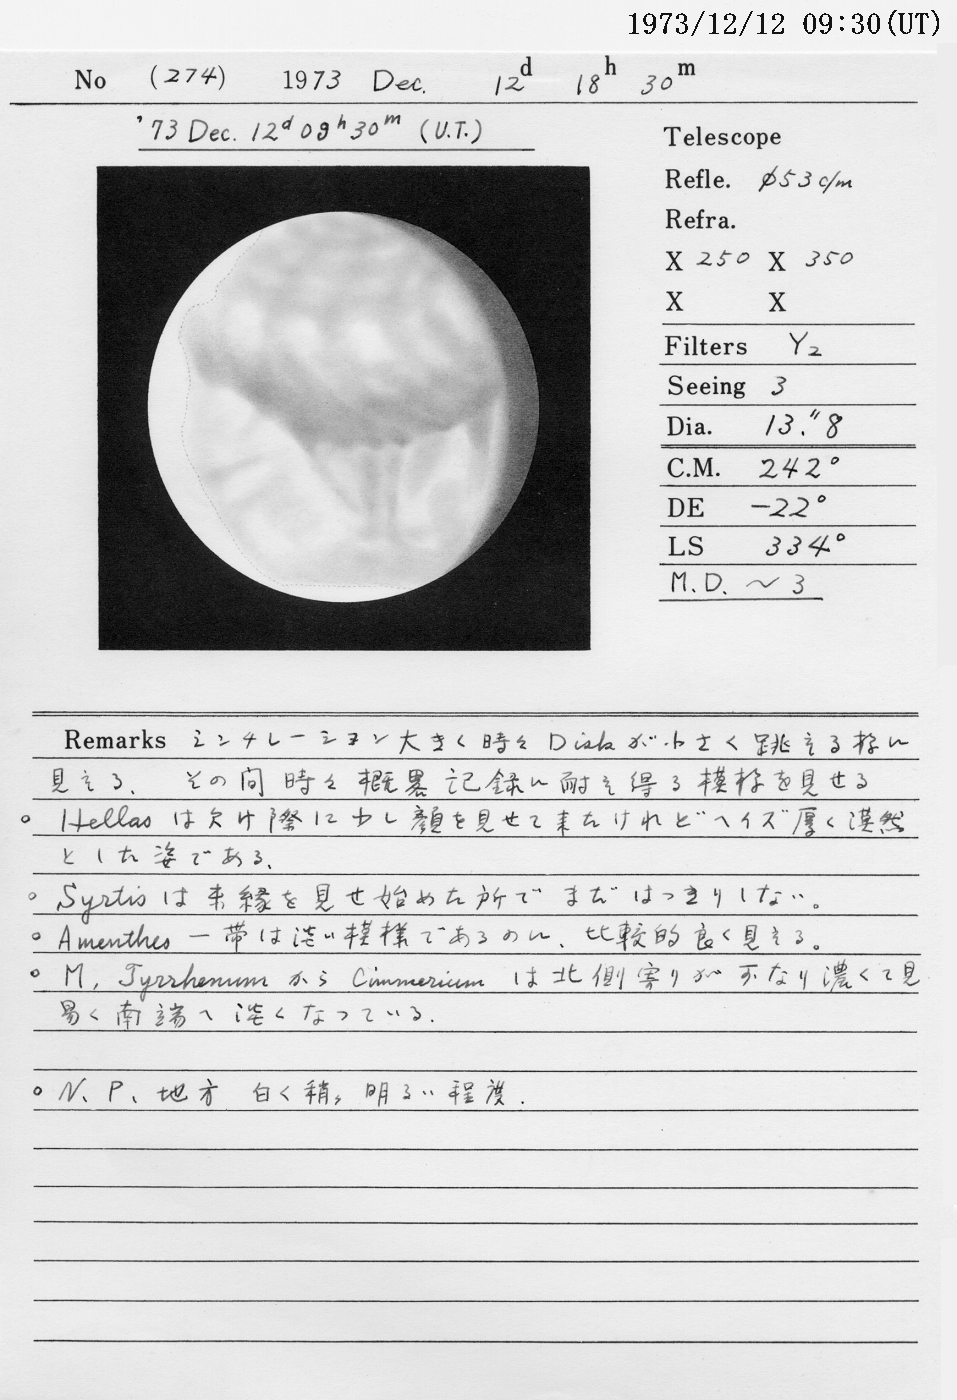 1973/12/12 09:30(UT)
No (274) 1973 Dec. 12d 18h 30m
'73 Dec. 12d 09h 30m (U.T.)
Telescope
Refle. φ53 c/m
Refra.
X 250 X 350
X X
Filters Y2
Seeing 3
Dia. 13."8
C.M. 242°
DE -22°
LS 334°
M.D. ~3
Remarks シンチレーション大きく時々Diskが小さく跳える様に
見える、 その間時々概略記録に耐え得る模様を見せる
○ Hellasは欠け際に少し顔を見せて来たけれどヘイズ厚く漠然
とした姿である、
○ Syrtisは東縁を見せ始めた所でまだはっきりしない。
○ Amenthes一帯は淡い模様であるのに、比較的良く見える。
○ M, TyrrhenumからCimmeriumは北側寄りがかなり濃くて見
易く南端へ淡くなっている.
○ N、P、地方 白く稍々明るい程度.